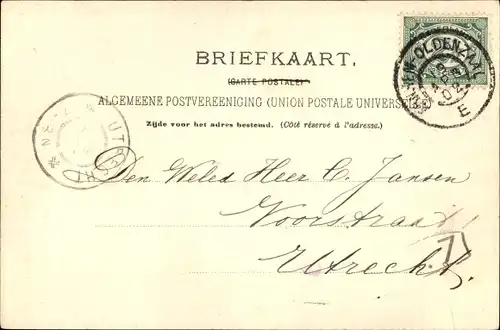 BRIEFKAART.
(CARTE POSTALE)
ALGEMEENE POSTVEREENIGING (UNION POSTALE UNIVERSELLE)
Zijde voor het adres bestemd. (Côté réservé à l'adresse.)
OLDENZAAL
E
UTRECHT
Den Weled Heer C. Jansen
Voorstraat
Utrecht.